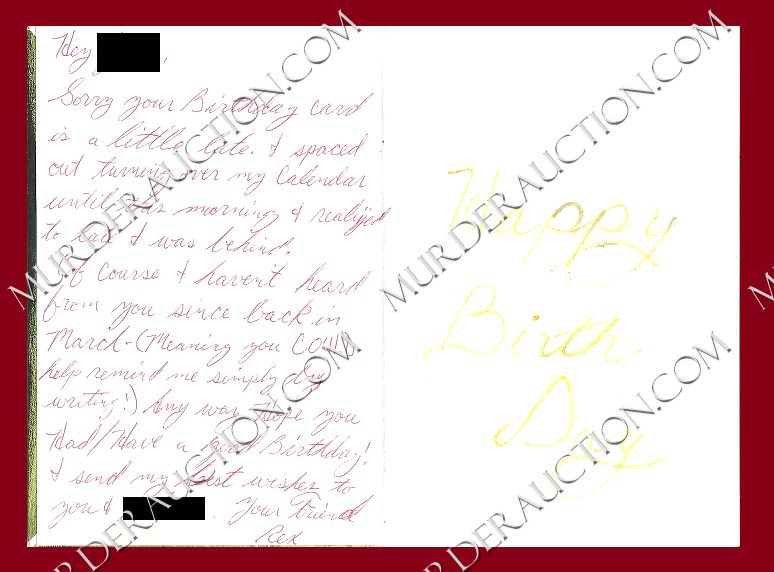 Hey
Sorry your Birthday card
is a little late. I spaced
out turning over my Calendar
until this morning & realized
to late I was behind.
Of Course I haven't heard
from you since back in
March-(Meaning you COULD
help remind me simply by
writing!) Any way Hope you
Had/Have a good Birthday!
I send my best wishes to
you &
. Your Friend
Rex
Happy
Birth
Day
MURDERAUCTION.COM
MURDERAUCTION.COM
MURDERAUCTION.COM
MURDERAUCTION.COM